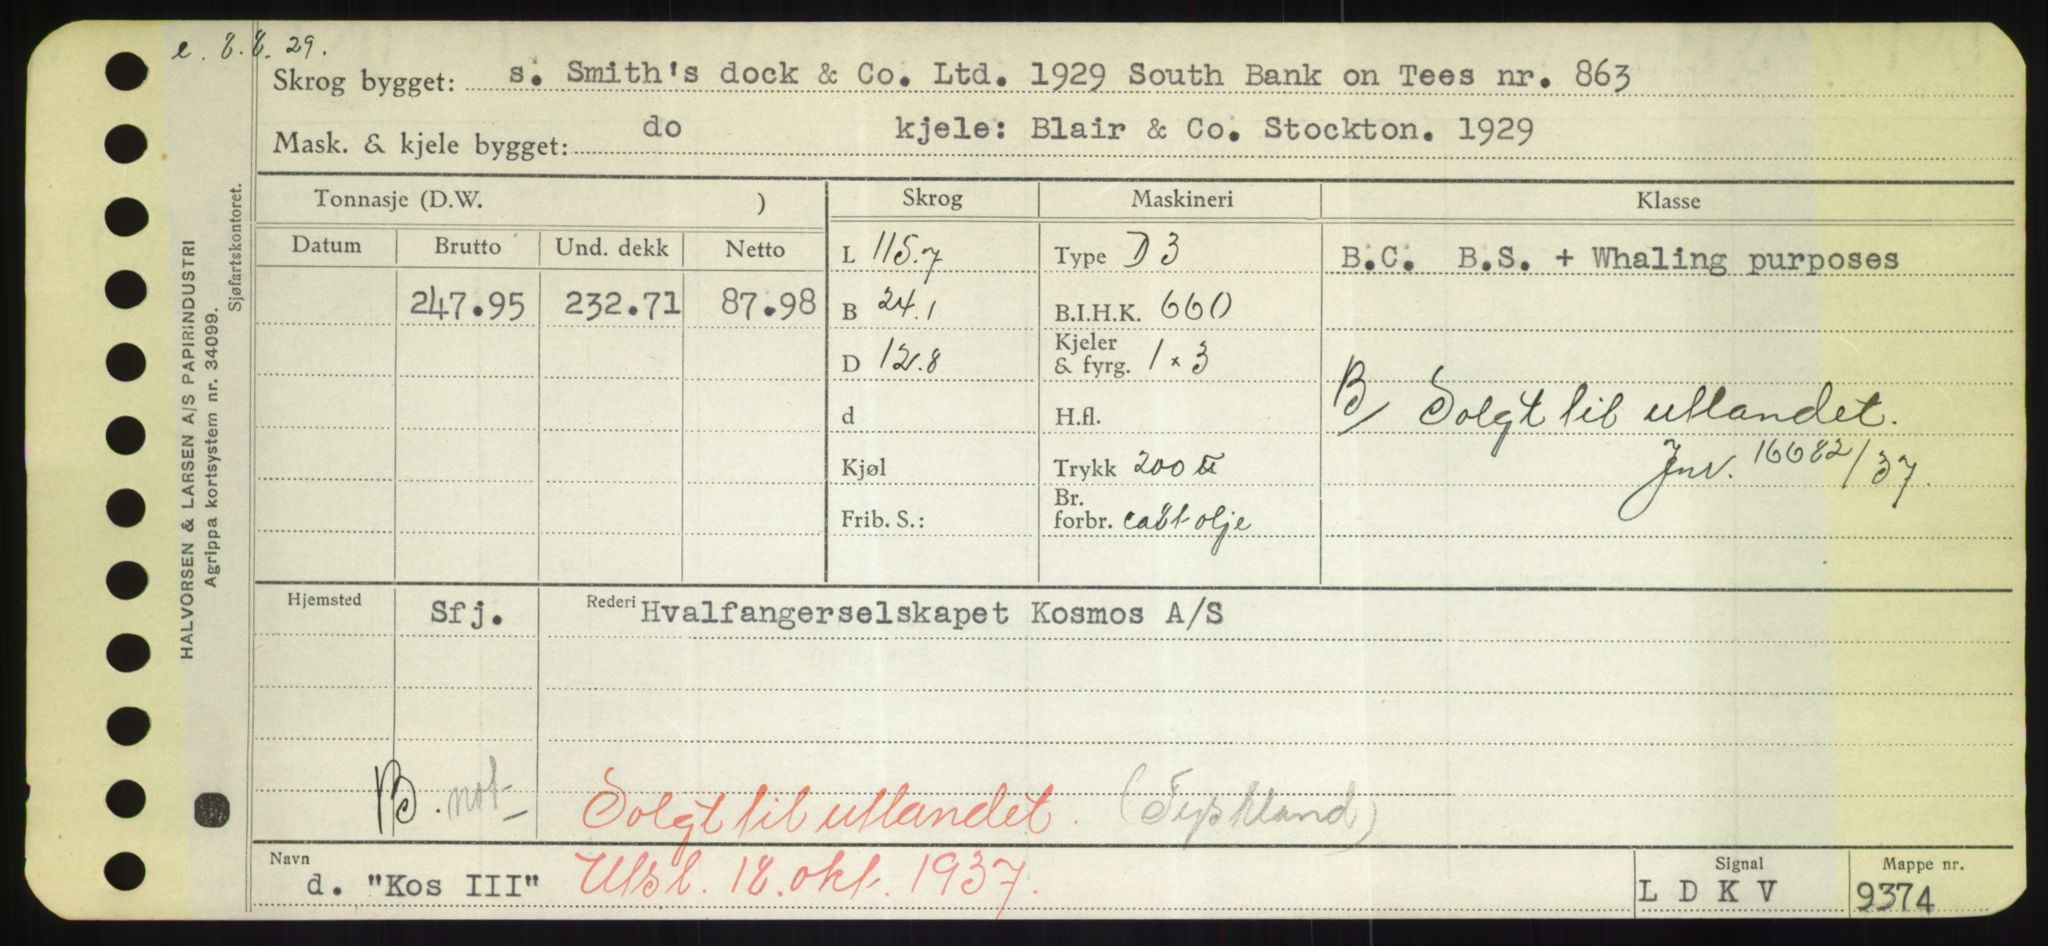 e. 8.8.29.
Skrog bygget: s. Smith's dock & Co. Ltd. 1929 South Bank on Tees nr. 863
Mask. & kjele bygget: do kjele: Blair & Co. Stockton. 1929
HALVORSEN & LARSEN A/S PAPIRINDUSTRI
Agrippa kortsystem nr. 34099.
Sjøfartskontoret.
Tonnasje (D.W. ) Skrog Maskineri Klasse
Datum Brutto Und. dekk Netto L 115.7 Type D 3 B.C. B.S. + Whaling purposes
247.95 232.71 87.98 B 24.1 B.I.H.K. 660
D 12.8 Kjeler & fyrg. 1 × 3
d H.fl. B/ Solgt til utlandet.
Kjøl Trykk 200 Jnr. 16682/37.
Frib. S.: Br. forbr. olje
Hjemsted Sfj. Rederi Hvalfangerselskapet Kosmos A/S
B. not- Solgt til utlandet. (Tyskland)
Navn d. "Kos III" Utsl. 18. okt. 1937. Signal L D K V Mappe nr. 9374